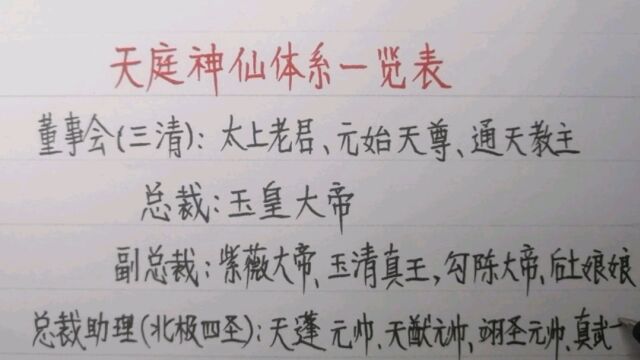 天庭神仙体系一览表
董事会(三清)：太上老君、元始天尊、通天教主
总裁：玉皇大帝
副总裁：紫薇大帝、玉清真王，勾陈大帝、后土娘娘
总裁助理(北极四圣)：天蓬元帅、天猷元帅、翊圣元帅、真武